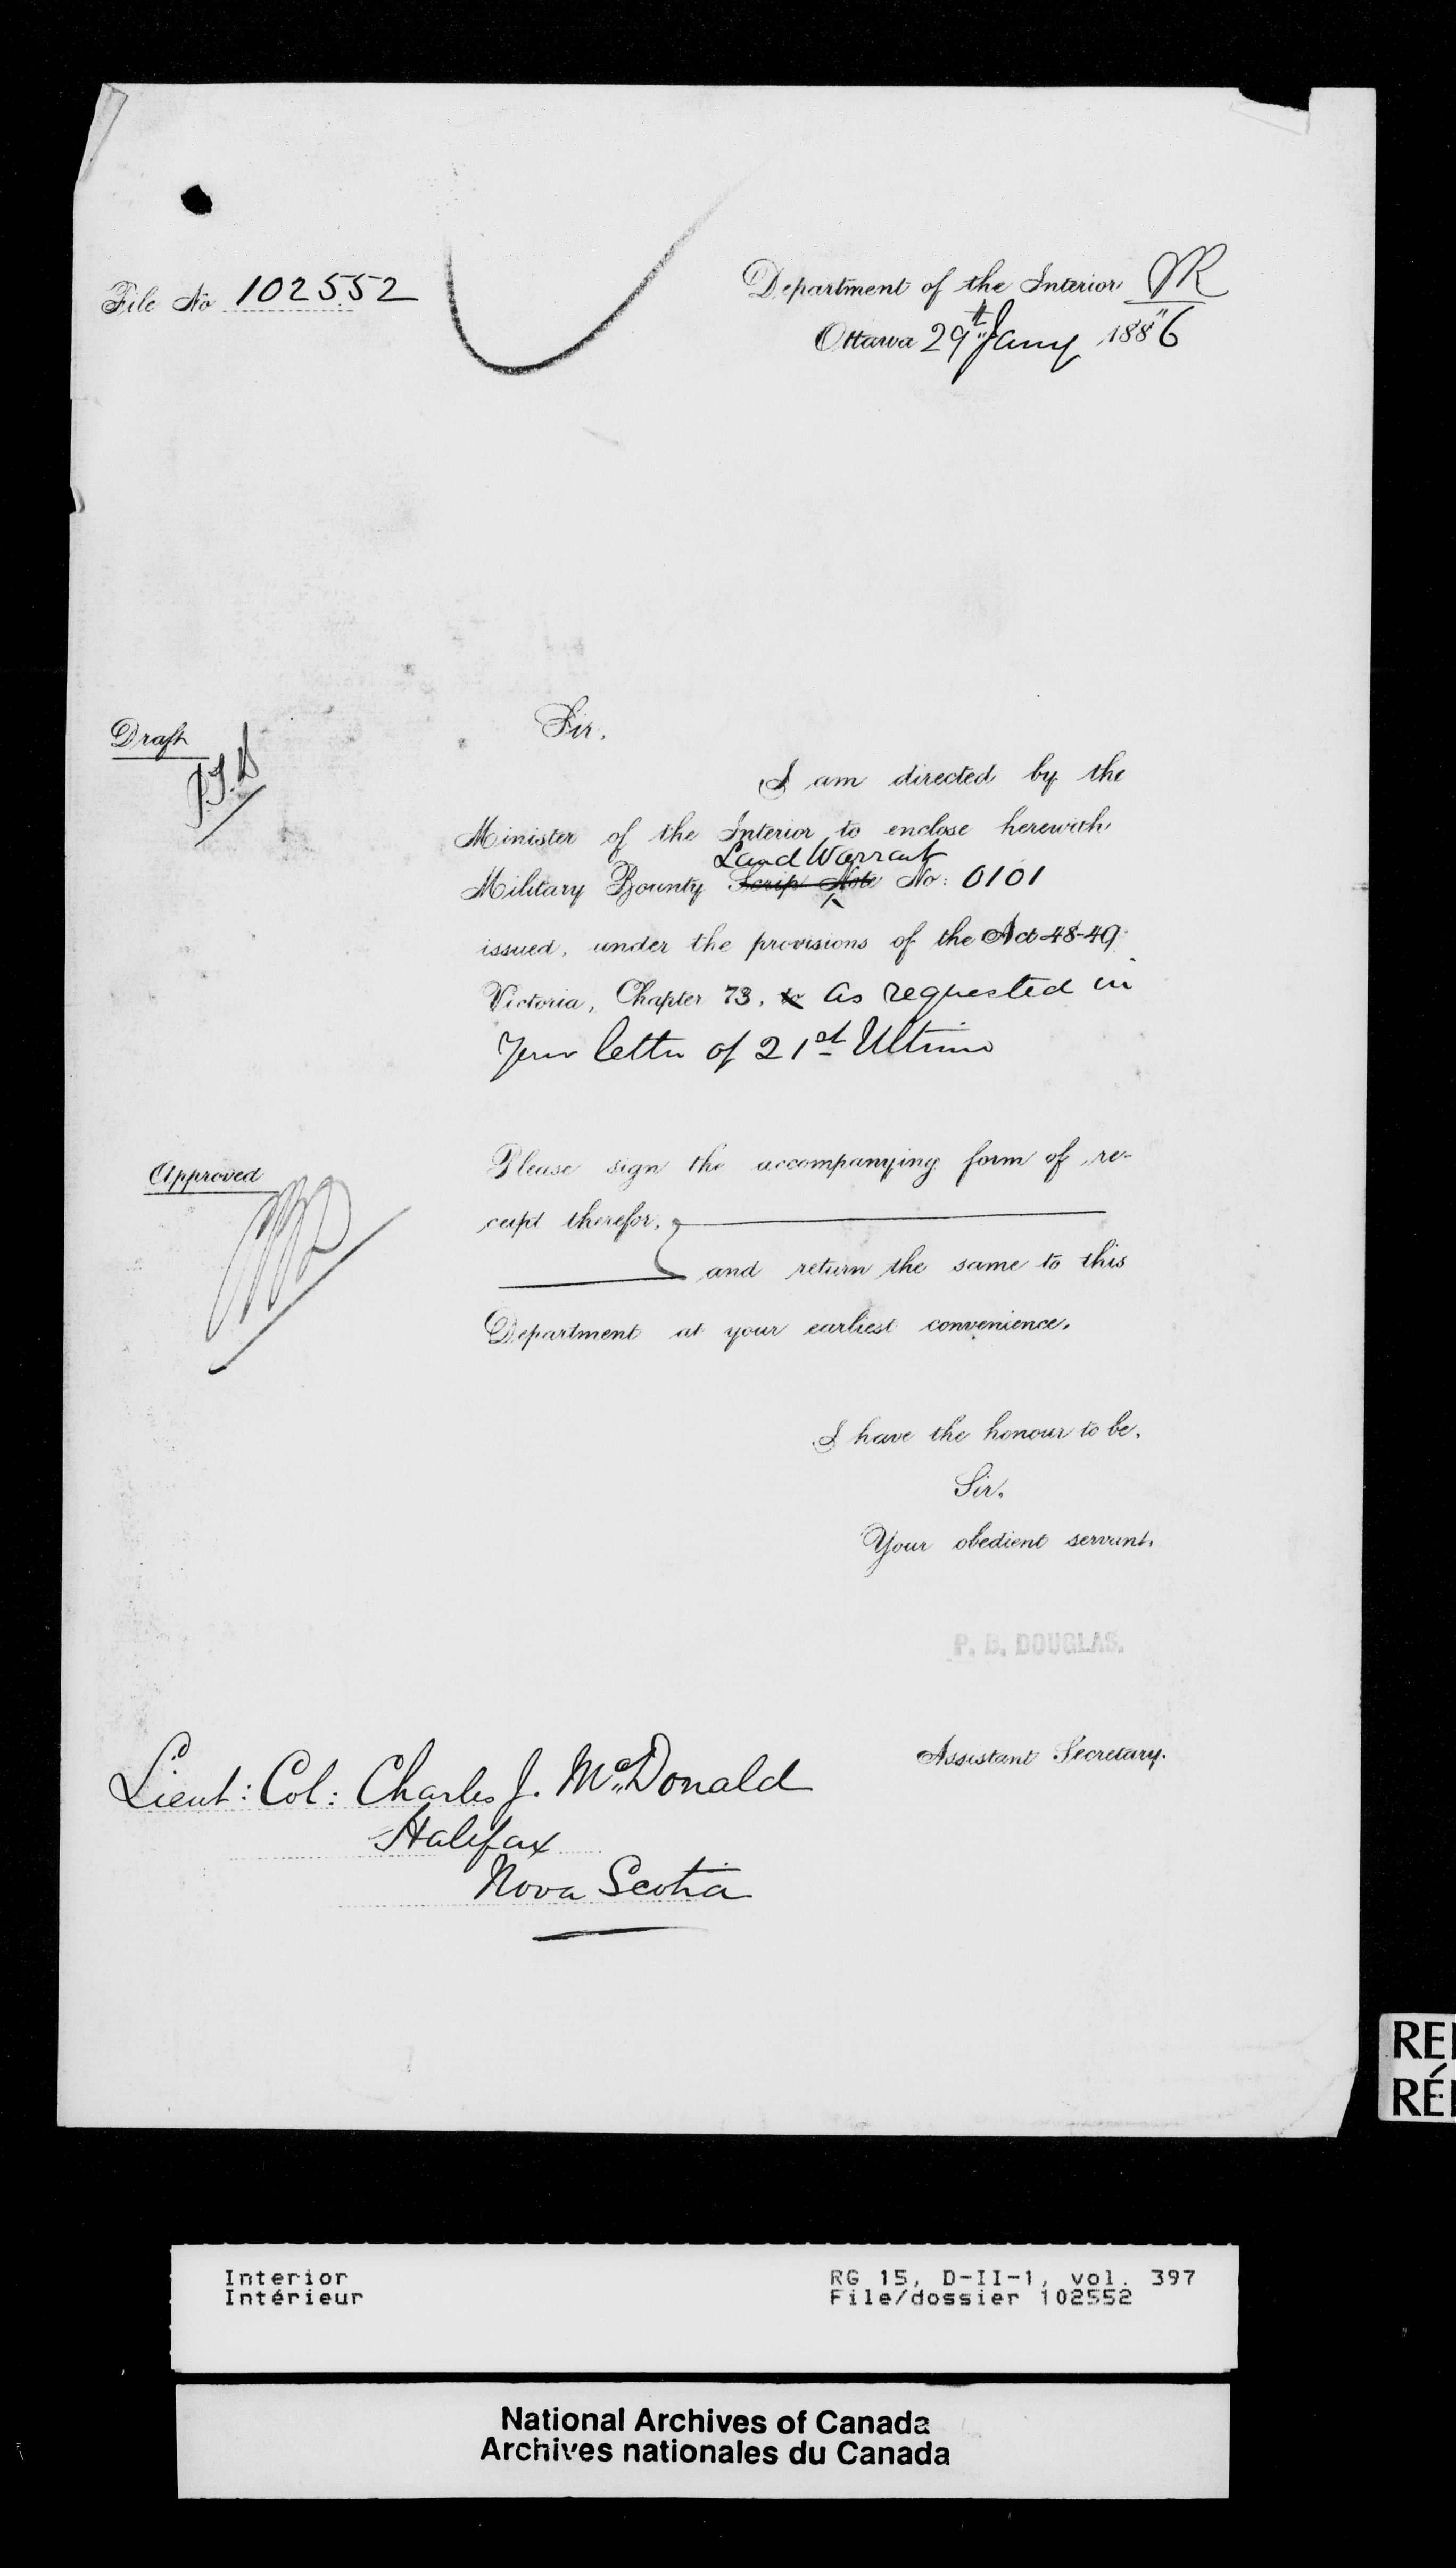 File No 102552
Department of the Interior
Ottawa 29th Jany 1886
Draft
Sir,
I am directed by the
Minister of the Interior to enclose herewith
Land Warrant
Military Bounty Scrip Note No: 0101
issued, under the provisions of the Act 48-49
Victoria, Chapter 73, to as requested in
Your letter of 21st Ultimo
Approved
Please sign the accompanying form of re-
ceipt therefor,
and return the same to this
Department at your earliest convenience.
I have the honour to be,
Sir,
Your obedient servant,
P. B. DOUGLAS.
Assistant Secretary.
Lieut: Col: Charles J. McDonald
Halifax
Nova Scotia
Interior
Intérieur
RG 15, D-II-1, vol. 397
File/dossier 102552
National Archives of Canada
Archives nationales du Canada